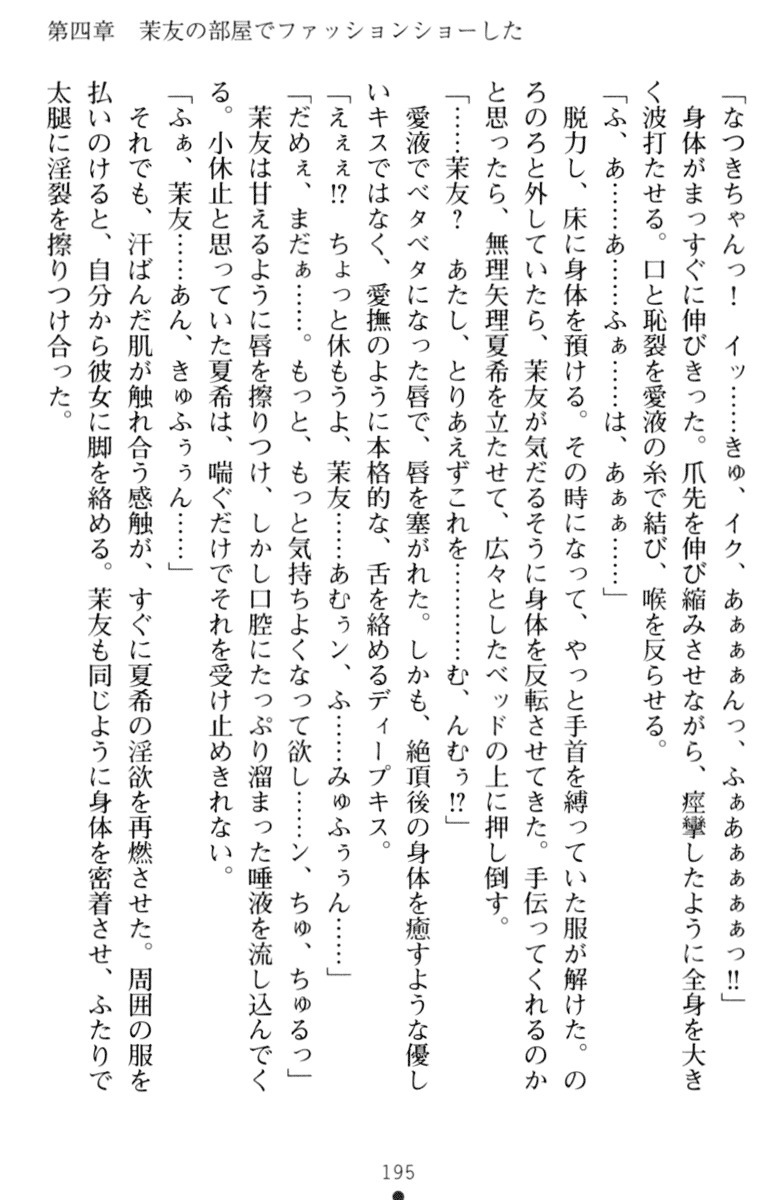 第四章　茉友の部屋でファッションショーした
「なつきちゃんっ！　イッ……きゅ、イク、あぁぁぁんっ、ふぁあぁぁぁぁっ!!」
　身体がまっすぐに伸びきった。爪先を伸び縮みさせながら、痙攣したように全身を大き
く波打たせる。口と恥裂を愛液の糸で結び、喉を反らせる。
「ふ、あ……あ……ふぁ……は、あぁぁ……」
　脱力し、床に身体を預ける。その時になって、やっと手首を縛っていた服が解けた。の
ろのろと外していたら、茉友が気だるそうに身体を反転させてきた。手伝ってくれるのか
と思ったら、無理矢理夏希を立たせて、広々としたベッドの上に押し倒す。
「……茉友？　あたし、とりあえずこれを…………む、んむぅ!?」
　愛液でベタベタになった唇で、唇を塞がれた。しかも、絶頂後の身体を癒すような優し
いキスではなく、愛撫のように本格的な、舌を絡めるディープキス。
「えぇぇ!?　ちょっと休もうよ、茉友……あむぅン、ふ……みゅふぅぅん……」
「だめぇ、まだぁ……。もっと、もっと気持ちよくなって欲し……ン、ちゅ、ちゅるっ」
　茉友は甘えるように唇を擦りつけ、しかし口腔にたっぷり溜まった唾液を流し込んでく
る。小休止と思っていた夏希は、喘ぐだけでそれを受け止めきれない。
「ふぁ、茉友……あん、きゅふぅぅん……」
　それでも、汗ばんだ肌が触れ合う感触が、すぐに夏希の淫欲を再燃させた。周囲の服を
払いのけると、自分から彼女に脚を絡める。茉友も同じように身体を密着させ、ふたりで
太腿に淫裂を擦りつけ合った。
195